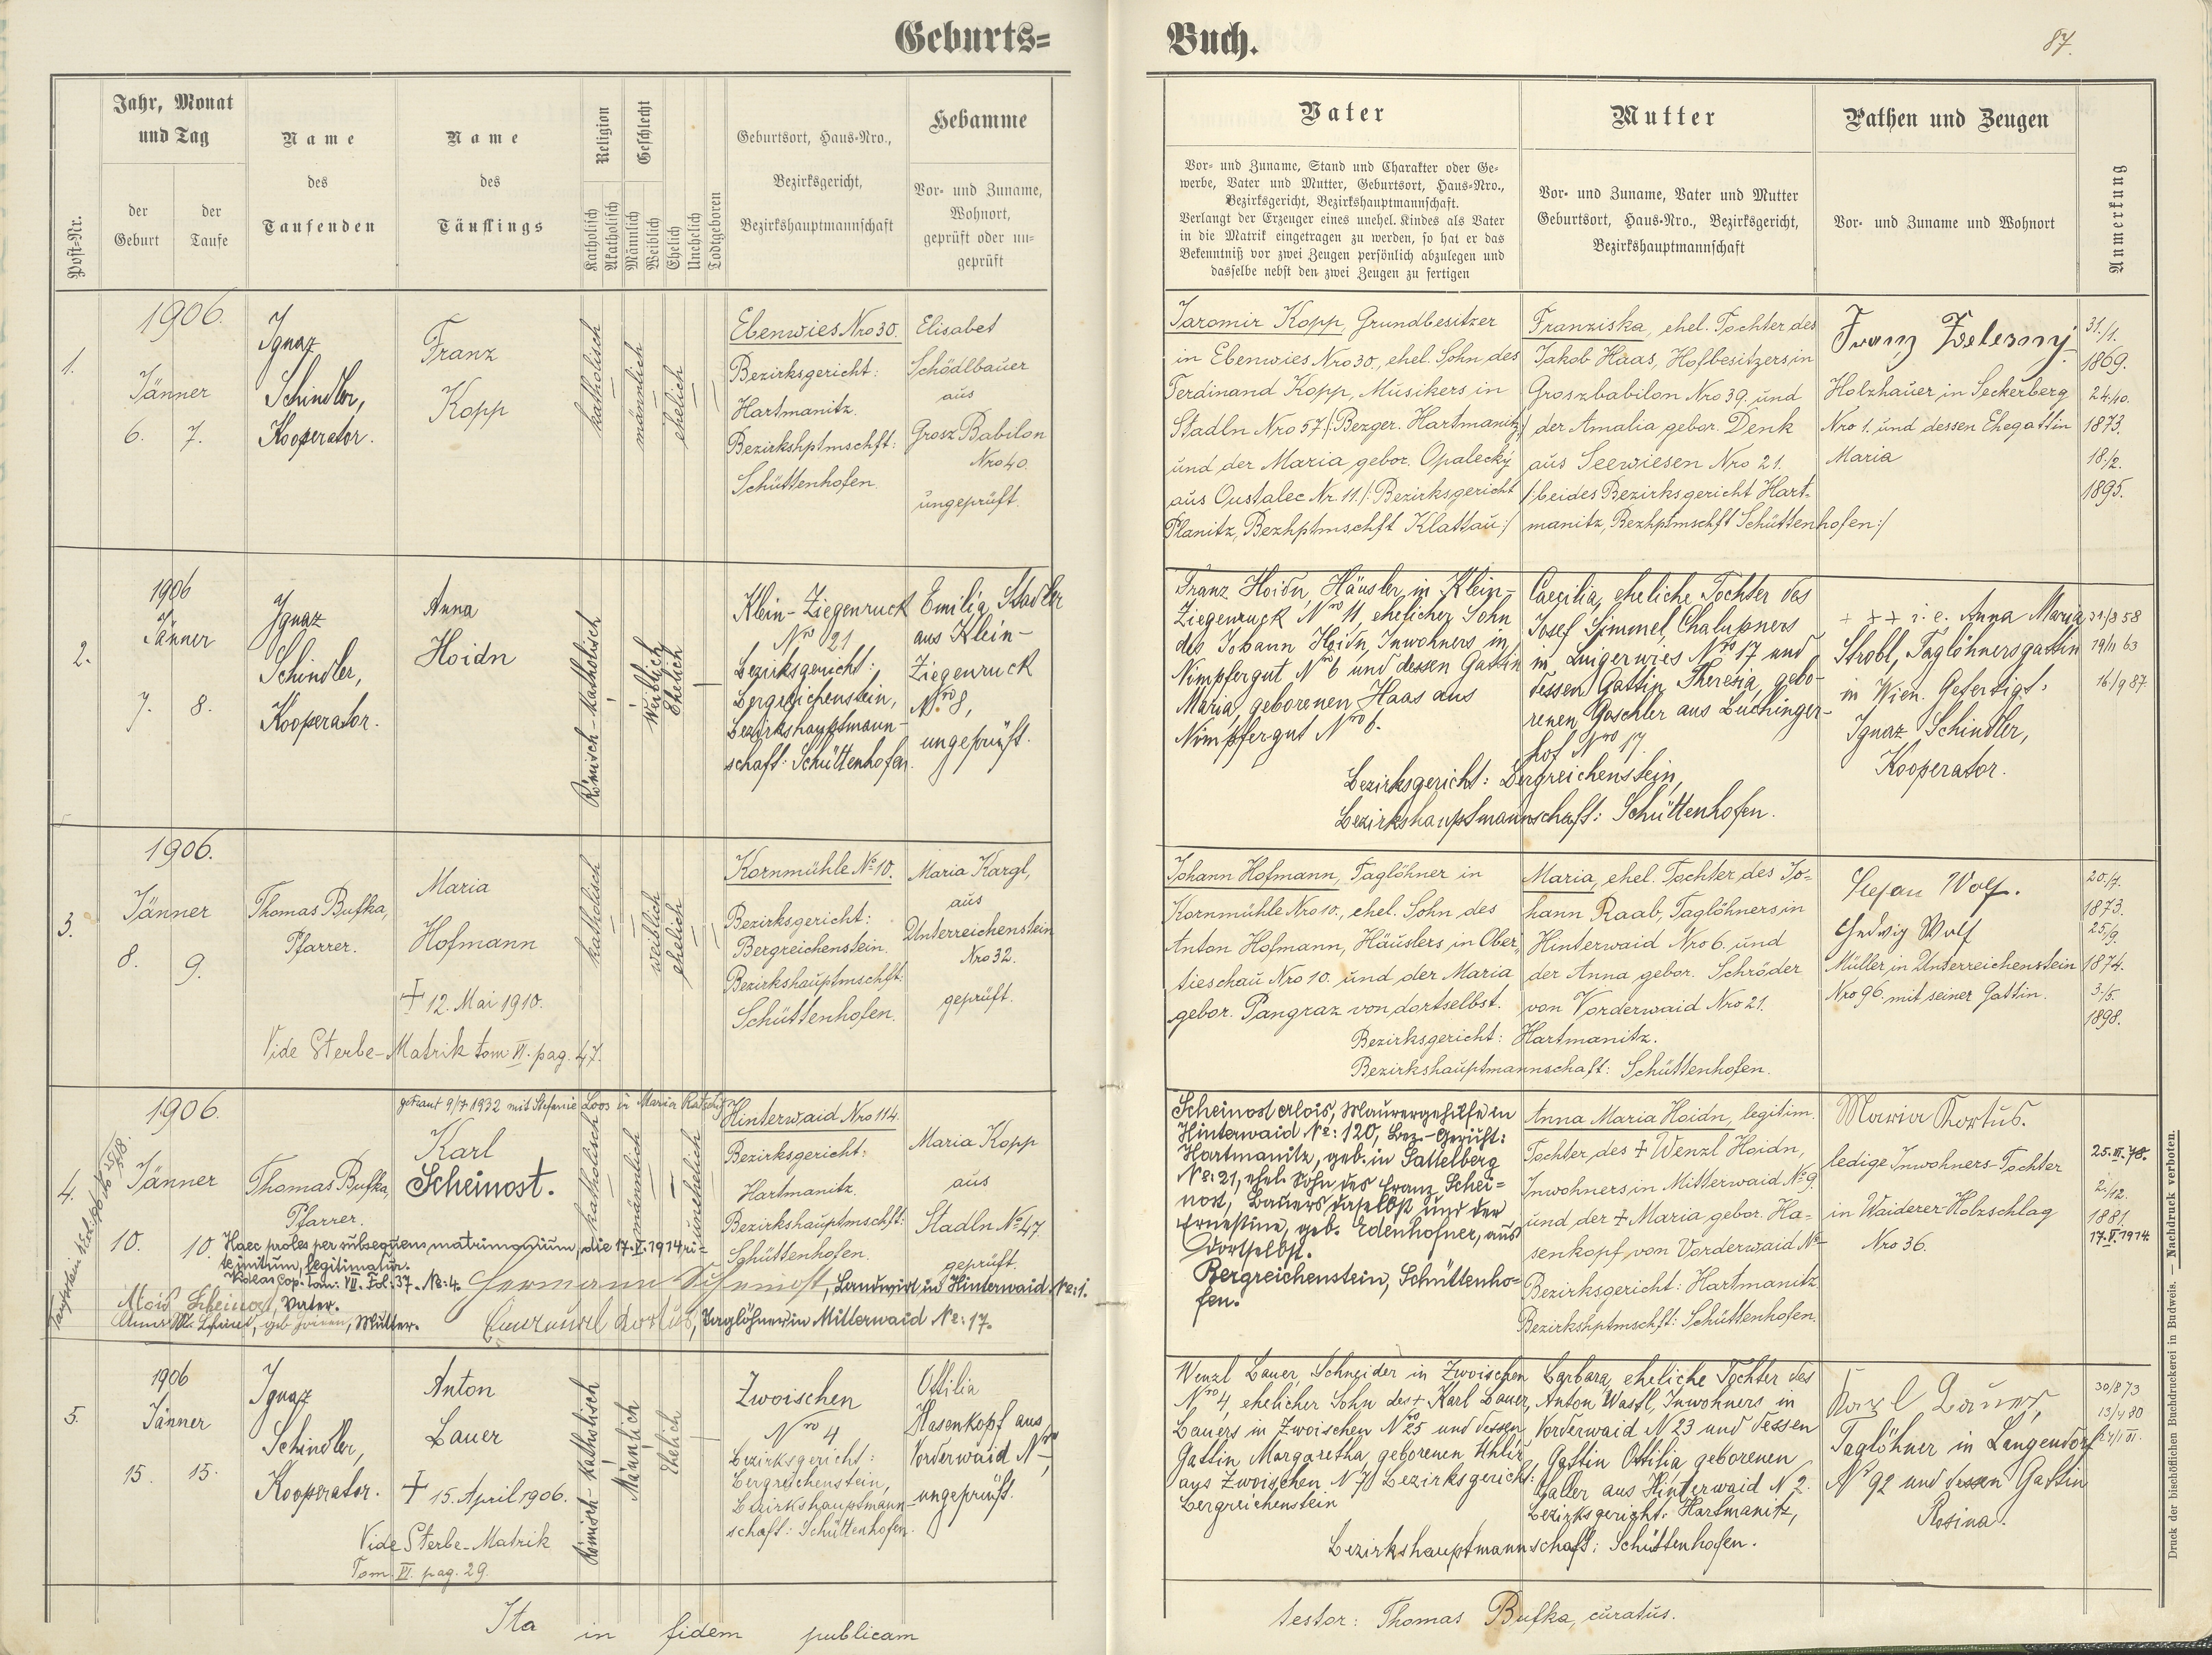 Geburts=
Buch.
87.
Post-Nr.
Jahr, Monat
und Tag
der
Geburt
der
Taufe
Name
des
Taufenden
Name
des
Täuflings
Religion
Katholisch
Akatholisch
Geschlecht
Männlich
Weiblich
Ehelich
Unehelich
Todtgeboren
Geburtsort, Haus-Nro.,
Bezirksgericht,
Bezirkshauptmannschaft
Hebamme
Vor- und Zuname,
Wohnort,
geprüft oder un-
geprüft
Vater
Vor- und Zuname, Stand und Charakter oder Ge-
werbe, Vater und Mutter, Geburtsort, Haus-Nro.,
Bezirksgericht, Bezirkshauptmannschaft.
Verlangt der Erzeuger eines unehel. Kindes als Vater
in die Matrik eingetragen zu werden, so hat er das
Bekenntniß vor zwei Zeugen persönlich abzulegen und
dasselbe nebst den zwei Zeugen zu fertigen
Mutter
Vor- und Zuname, Vater und Mutter
Geburtsort, Haus-Nro., Bezirksgericht,
Bezirkshauptmannschaft
Pathen und Zeugen
Vor- und Zuname und Wohnort
Anmerkung
1.
1906.
Jänner
6. 7.
Ignaz
Schindler,
Kooperator.
Franz
Kopp
katholisch
männlich
ehelich
Ebenwies Nro 30.
Bezirksgericht:
Hartmanitz.
Bezirkshptmschft:
Schüttenhofen.
Elisabet
Schödlbauer
aus
Grosz Babilon
Nro 40.
ungeprüft.
Jaromir Kopp, Grundbesitzer
in Ebenwies Nro 30., ehel. Sohn des
Ferdinand Kopp, Musikers in
Stadln Nro 57 /:Bezger. Hartmanitz:/
und der Maria gebor. Opalecký
aus Oustalec Nr. 11. /:Bezirksgericht
Planitz, Bezhptmschft Klattau:/
Franziska, ehel. Tochter des
Jakob Haas, Hofbesitzers in
Groszbabilon Nro 39. und
der Amalia gebor. Denk
aus Seewiesen Nro 21.
/:beides Bezirksgericht Hart-
manitz, Bezhptmschft Schüttenhofen:/
Franz Zelezny
Holzhauer in Seckerberg
Nro 1. und dessen Ehegattin
Maria
31./1.
1869.
24./10.
1873.
18./2.
1895.
2.
1906
Jänner
7. 8.
Ignaz
Schindler,
Kooperator.
Anna
Hoidn
Römisch-katholisch
Weiblich
Ehelich
Klein-Ziegenruck
Nro 21
Bezirksgericht:
Bergreichenstein,
Bezirkshauptmann-
schaft: Schüttenhofen.
Emilia Stadler
aus Klein-
Ziegenruck
Nro 8,
ungeprüft.
Franz Hoidn, Häusler in Klein-
Ziegenruck Nro 11, ehelicher Sohn
des Johann Hoidn, Inwohners in
Nimpfergut Nro 6 und dessen Gattin
Maria, geborenen Haas aus
Nimpfergut Nro 6.
Caecilia, eheliche Tochter des
Josef Simmel, Chalupners
in Luigerwies Nro 17 und
dessen Gattin Theresia, gebo-
renen Goschler aus Buchinger-
hof Nro 17.
Bezirksgericht: Bergreichenstein,
Bezirkshauptmannschaft: Schüttenhofen.
+ + + i. e. Anna Maria
Strobl, Taglöhnersgattin
in Wien. Gefertigt:
Ignaz Schindler,
Kooperator.
31/3 58
19/11 63
16/9 87.
3.
1906.
Jänner
8. 9.
Thomas Bufka,
Pfarrer.
Maria
Hofmann
+ 12. Mai 1910.
Vide Sterbe-Matrik tom VI. pag. 47.
katholisch
weiblich
ehelich
Kornmühle No 10.
Bezirksgericht:
Bergreichenstein.
Bezirkshauptmschft:
Schüttenhofen.
Maria Kargl,
aus
Unterreichenstein
Nro 32.
geprüft.
Johann Hofmann, Taglöhner in
Kornmühle Nro 10., ehel. Sohn des
Anton Hofmann, Häuslers in Ober-
tieschau Nro 10. und der Maria
gebor. Pangraz von dortselbst.
Maria, ehel. Tochter des Jo-
hann Raab, Taglöhners in
Hinterwaid Nro 6. und
der Anna gebor. Schröder
von Vorderwaid Nro 21.
Bezirksgericht: Hartmanitz.
Bezirkshauptmannschaft: Schüttenhofen.
Stefan Wolf.
Hedwig Wolf
Müller in Unterreichenstein
Nro 96. mit seiner Gattin.
20./7.
1873.
25./9.
1874.
3./5.
1898.
4.
1906.
Jänner
10. 10.
Thomas Bufka,
Pfarrer.
getraut 9/7 1932 mit Stefanie Loos in Maria Ratschitz
Karl
Scheinost.
katholisch
männlich
unehelich
Hinterwaid Nro 114.
Bezirksgericht:
Hartmanitz.
Bezirkshauptmschft:
Schüttenhofen.
Maria Kopp
aus
Stadln No 47.
geprüft.
Haec proles per subsequens matrimonium, die 17. V. 1914 ri-
te initum, legitimatur.
Videas Cop. Tom: VII. Fol: 37. No: 4.
Hermann Scheinost, Landwirt in Hinterwaid No: 1.
Alois Scheinost, Vater.
Anna M. Scheinost, geb Hoiden, Mutter.
Emanuel Kortus, Taglöhner in Mitterwaid No: 17.
Scheinost Alois, Maurergehilfe in
Hinterwaid No: 120, Bez.-Gericht:
Hartmanitz, geb. in Sattelberg
No: 21, ehel. Sohn des Franz Schei=
nost, Bauers daselbst und der
Ernestine, geb. Edenhofner, aus
dortselbst.
Bergreichenstein, Schüttenho=
fen.
Anna Maria Hoidn, legitim.
Tochter des + Wenzl Hoidn,
Inwohners in Mitterwaid No 9.
und der + Maria gebor. Ha-
senkopf, von Vorderwaid No -
Bezirksgericht: Hartmanitz
Bezirkshptmschft: Schüttenhofen.
Maria Kortus.
ledige Inwohners-Tochter
in Waiderer-Holzschlag
Nro 36.
25. VI. 78.
2./12.
1881.
17. V. 1914.
5.
1906
Jänner
15. 15.
Ignaz
Schindler,
Kooperator.
Anton
Bauer
+ 15. April 1906.
Vide Sterbe-Matrik
Tom. VI. pag. 29.
Römisch-katholisch
Männlich
Ehelich
Zwoischen
Nro 4
Bezirksgericht:
Bergreichenstein,
Bezirkshauptmann-
schaft: Schüttenhofen.
Ottilia
Hasenkopf aus
Vorderwaid Nro -,
ungeprüft.
Wenzl Bauer, Schneider in Zwoischen
Nro 4, ehelicher Sohn des + Karl Bauer,
Bauers in Zwoischen Nro 25 und dessen
Gattin Margaretha, geborenen Uhlir
aus Zwoischen N 7/ Bezirksgericht:
Bergreichenstein
Barbara, eheliche Tochter des
Anton Wastl, Inwohners in
Vorderwaid N 23 und dessen
Gattin Ottilia geborenen
Galler aus Hinterwaid N 2.
Bezirksgericht: Hartmanitz,
Bezirkshauptmannschaft: Schüttenhofen.
Karl Bauer,
Taglöhner in Langendorf
No 92 und dessen Gattin
Rosina.
30/8 73
13/4 80
Ita in fidem publicam
testor: Thomas Bufka, curatus.
Druck der bischöflichen Buchdruckerei in Budweis. — Nachdruck verboten.